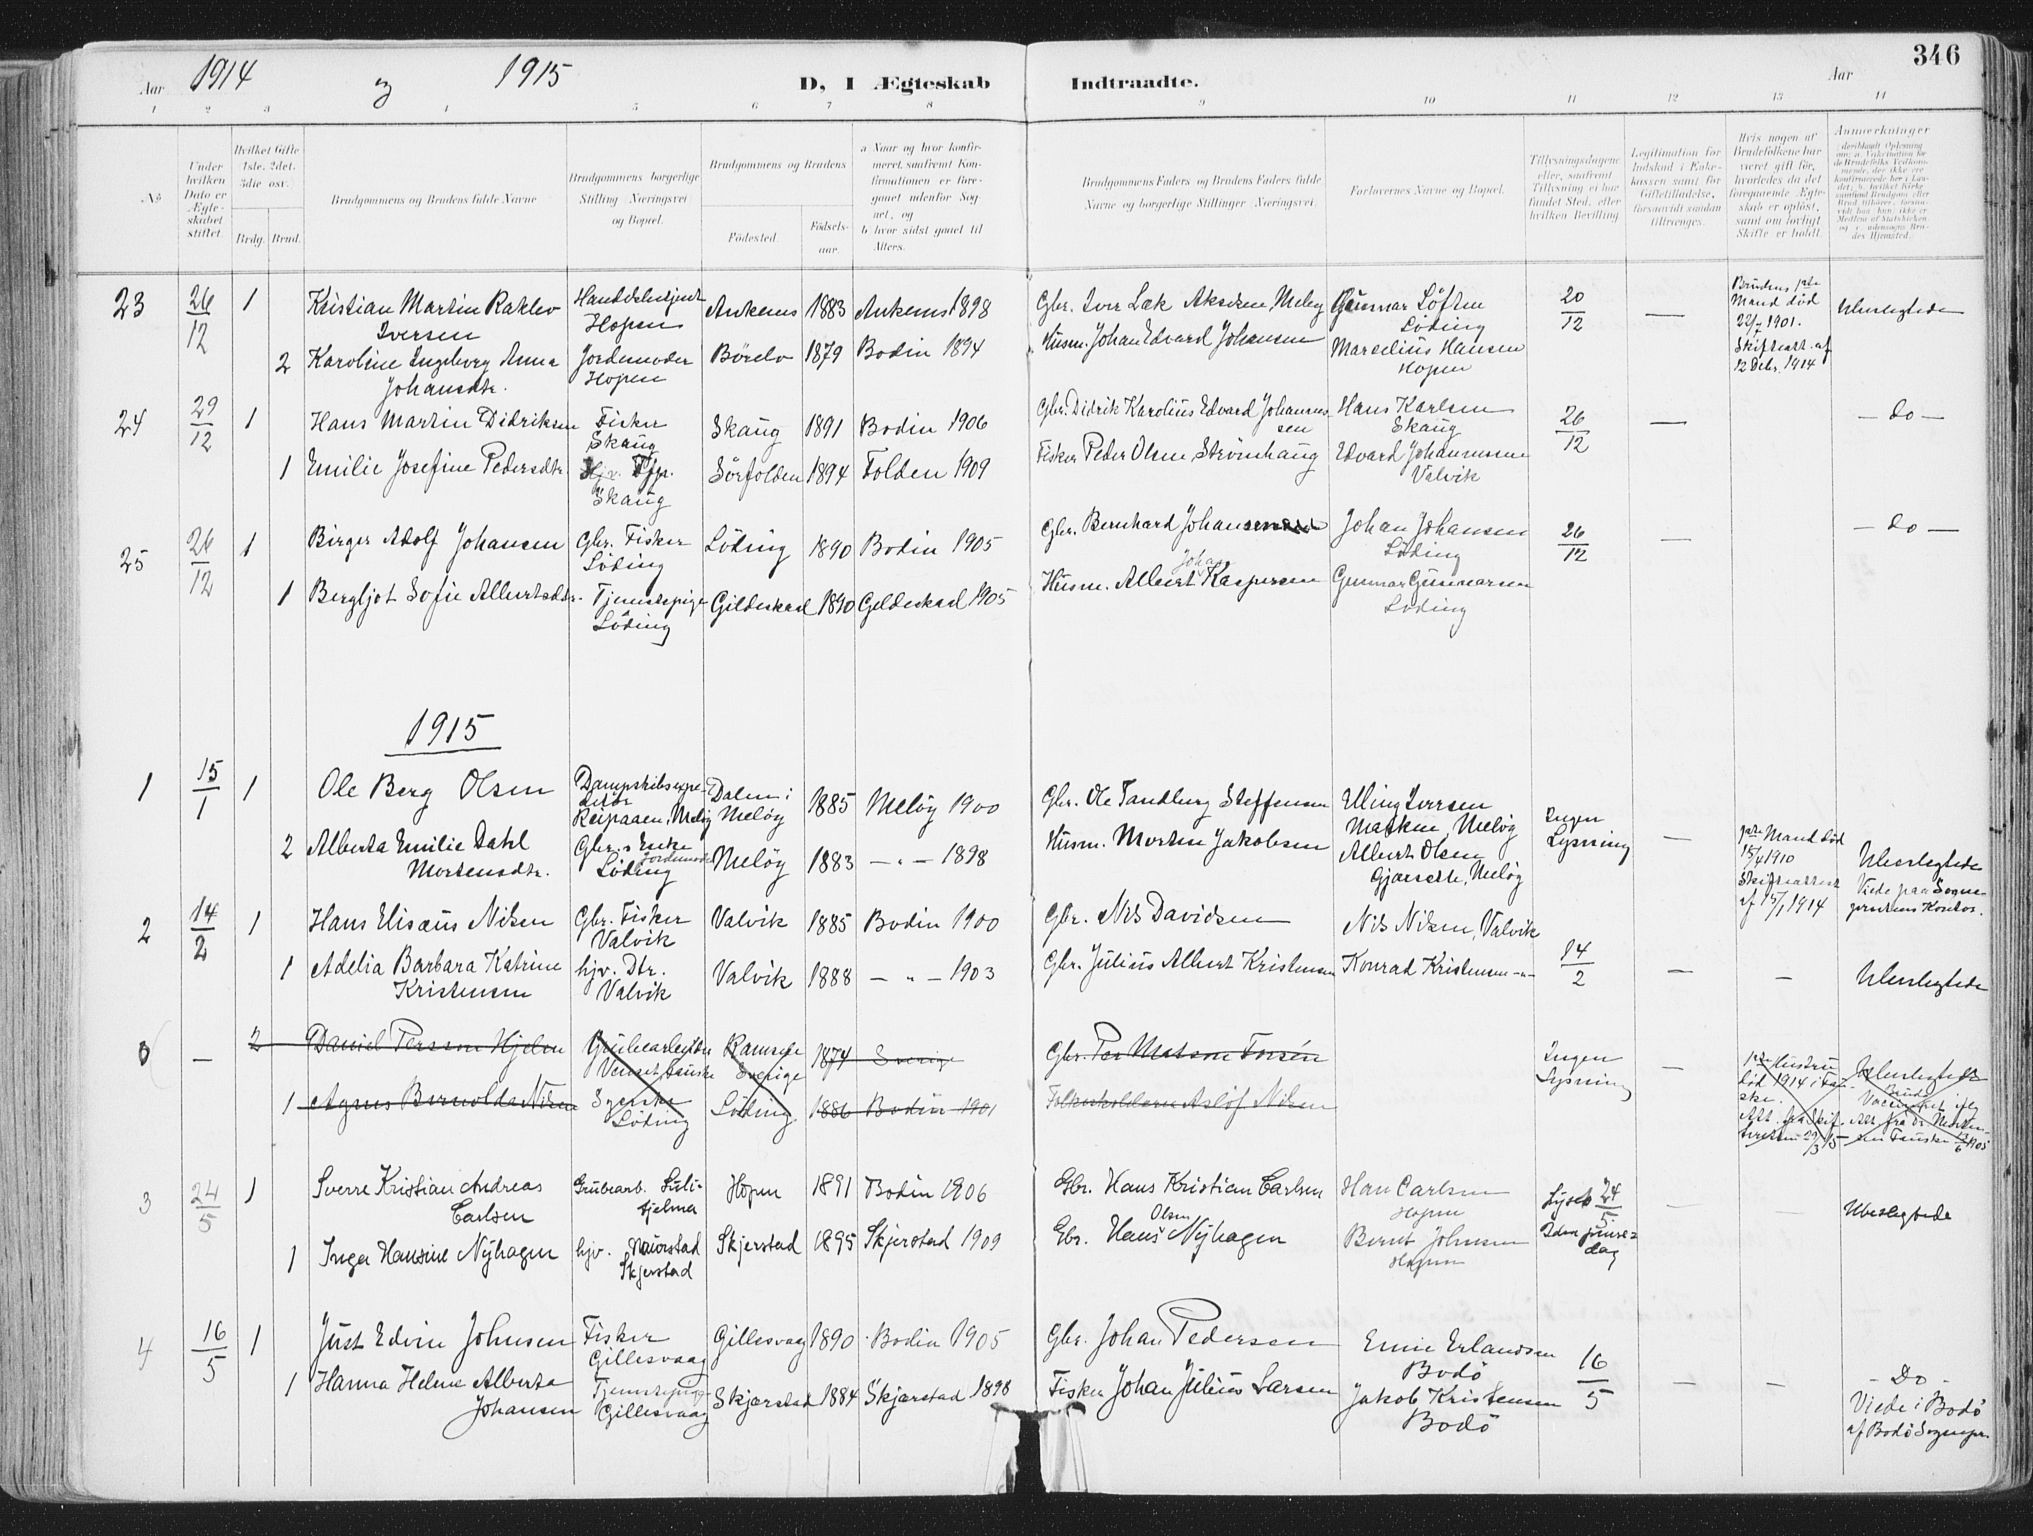 Aar 1914 og 1915 D, I Ægteskab Indtraadte. Aar 346
1 2 3 4 5 6 7 8 9 10 11 12 13 14
No
Under hvilken Dato er Ægteskabet stiftet.
Hvilket Gifte 1ste, 2det, 3die osv.
Brdg. Brud.
Brudgommens og Brudens fulde Navne
Brudgommens borgerlige Stilling Næringsvei og Bopæl.
Brudgommens og Brudens
Fødested. Fødselsaar.
a Naar og hvor konfirmeret, saafremt Konfirmationen er foregaaet udenfor Sognet, og
b hvor sidst gaaet til Alters.
Brudgommens Faders og Brudens Faders fulde Navne og borgerlige Stillinger Næringsvei.
Forlovernes Navne og Bopæl.
Tillysningsdagene eller, saafremt Tillysning ei har fundet Sted, efter hvilken Bevilling.
Legitimation for Indskud i Enkekassen samt for Giftetilladelse, forsaavidt saadan tiltrænges.
Hvis nogen af Brudefolkene har været gift før, hvorledes da det foregaaende Ægteskab er opløst, samt om lovligt Skifte er holdt.
Anmerkninger
23 26/12 1 Kristian Martin Raklev Iversen
Hopen Ankenes 1883 Ankenes 1898
Gunnar Løften Løding 20/12 — Ubeslegtede
Brudens 1ste Mand død 22/7 1901. Skifteatt. af 12 Debr. 1914
2 Karoline Ingeborg Anna Johansdtr. Jordemoder Hopen Børelv 1879 Bodin 1894
Husm. Johan Edvard Johansen Marselius Hansen Hopen
24 29/12 1 Hans Martin Didriksen Fisker Skaug Skaug 1891 Bodin 1906
Gbr. Didrik Karolius Edvard Johannessen Hans Karlsen Skaug 26/12 — — do —
1 Emilie Josefine Pedersdtr. Skaug Sørfolden 1894 Folden 1909
Fisker Peder Olsen Strømhaug Edvard Johannesen Valvik
25 26/12 1 Birger Adolf Johansen Gbr. Fisker Løding Løding 1890 Bodin 1905
Gbr. Bernhard Johansen Johan Johansen Løding 26/12 — — do —
1 Bergljot Sofie Albertsdtr. Tjenestepige Løding Gildeskaal 1890 Gildeskaal 1905
Husm. Albert Johan Kaspersen Gunnar Gunnarsen Løding
1915
1 15/1 1 Ole Berg Olsen Dampskibsexpeditør Reipaaen, Meløy Dalen i Meløy 1885 Meløy 1900
Gbr. Ole Tandberg Steffensen Elling Iversen Meløy Ingen Lysning —
2 Alberta Emilie Dahl Mortensdtr. Gbr.s Enke Jordemoder Løding Meløy 1883 — " — 1898
Husm. Morten Jakobsen Albert Olsen Meløy
1ste Mand død 15/4 1910 Skifteattest af 15/1 1914
Ubeslegtede Viede paa Sogneprestens Kontor.
2 14/2 1 Hans Elisæus Nilsen Gbr. Fisker Valvik Valvik 1885 Bodin 1900
Gbr. Nils Davidsen Nils Nilsen, Valvik 14/2 — — Ubeslegtede
1 Adelia Barbara Katrine Kristensen hjv. Dtr. Valvik Valvik 1888 — " — 1903
Gbr. Julius Albert Kristensen Konrad Kristensen —"—
— 2 Daniel Persson Hjelm Grubearbeider Ramsele Sverige 1874 Sverige
Gbr. Per Matson Ingen Lysning —
1 Agnes Bernolda Nilsen Løding Løding 1886 Bodin 1901
Nilsen
1ste Hustru død 1914 i
Ubeslegtede
3 24/5 1 Sverre Kristian Andreas Carlsen Grubearb. Sulitjelma Hopen 1891 Bodin 1906
Gbr. Hans Kristian Carlsen Hans Carlsen Hopen Lyst 24/5 — — Ubeslegtede
1 Inga Hansine Nyhagen hjv. Skjerstad Skjerstad 1895 Skjerstad 1909
Gbr. Hans Olsen Nyhagen Bernt Johnsen Hopen
4 16/5 1 Just Edvin Johnsen Fisker Gillesvaag Gillesvaag 1890 Bodin 1905
Gbr. Johan Pedersen Erlandsen Bodø 16/5 — —
1 Hanna Helene Alberta Johansen Tjenestepige Gillesvaag Skjerstad 1884 Skjerstad 1898
Fisker Johan Julius Larsen Jakob Kristensen Bodø
— Do — Viede i Bodø af Bodø Sognepr.